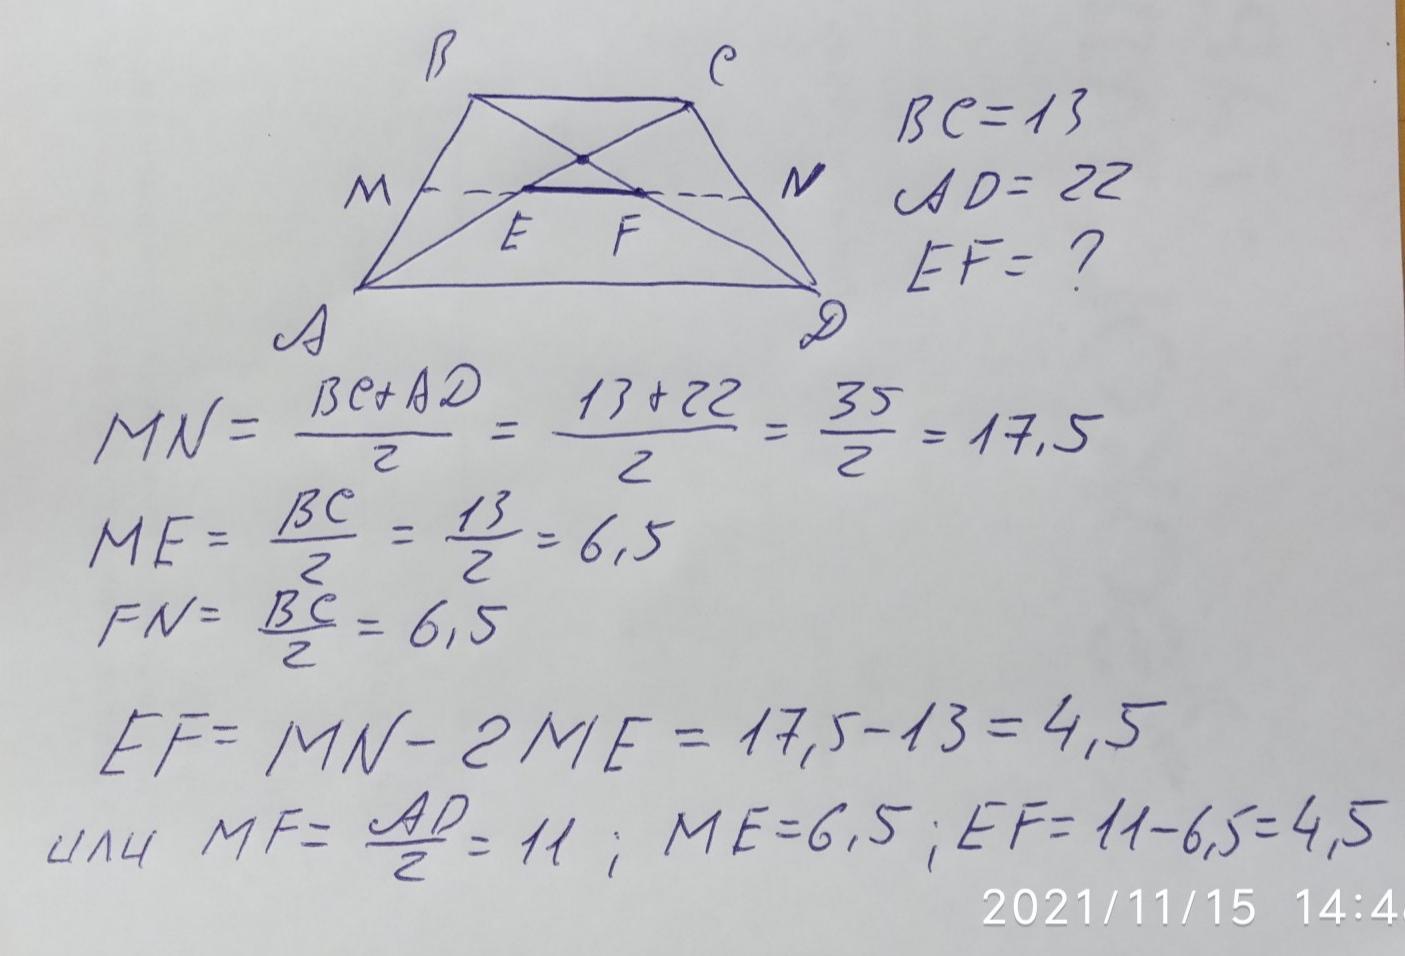 B C
BC=13
M N
AD=22
E F
EF=?
A D
MN = BC+AD/2 = 13+22/2 = 35/2 = 17,5
ME = BC/2 = 13/2 = 6,5
FN = BC/2 = 6,5
EF = MN - 2ME = 17,5-13 = 4,5
или MF = AD/2 = 11 ; ME=6,5 ; EF=11-6,5=4,5
2021/11/15 14:4